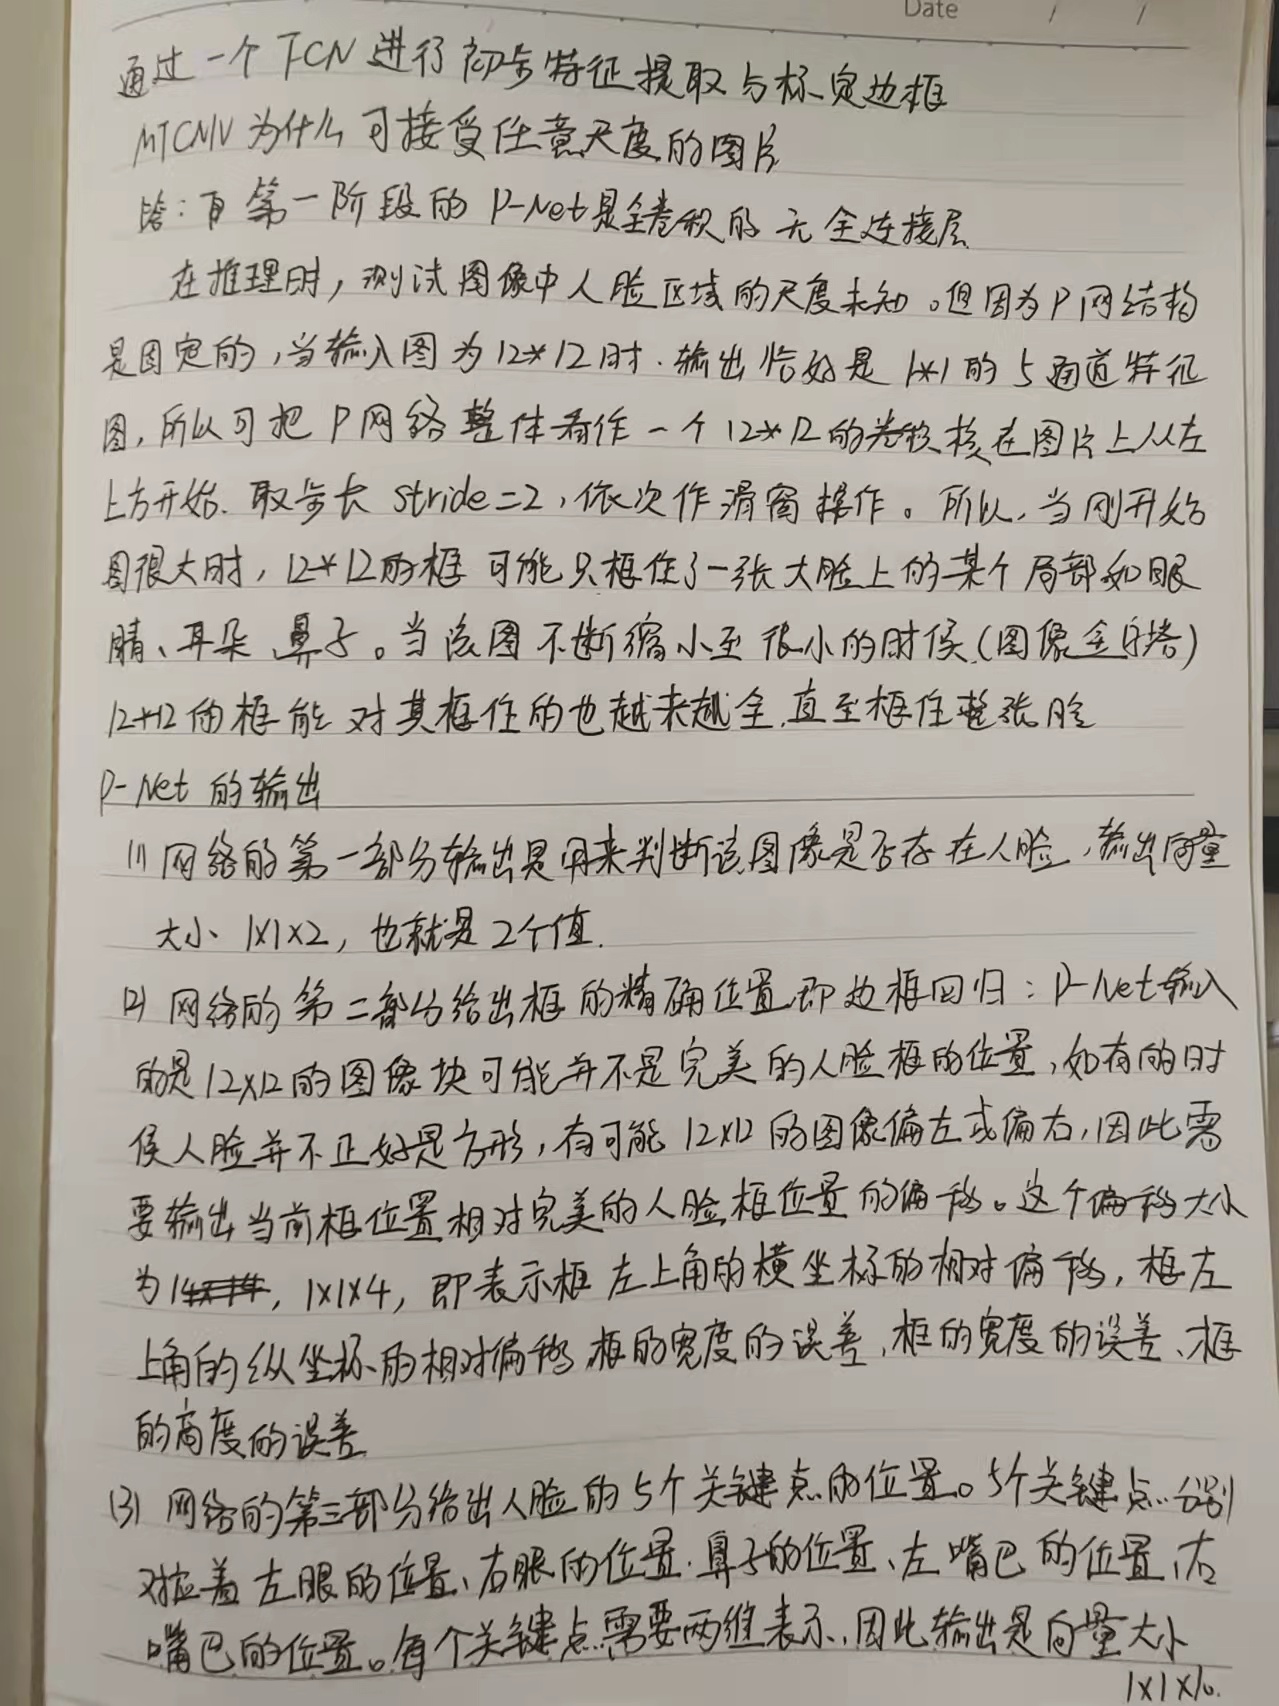 Date / /
通过一个FCN进行初步特征提取与标定边框
MTCNN为什么可接受任意尺度的图片
答：因第一阶段的P-Net是全卷积的 无全连接层
在推理时，测试图像中人脸区域的尺度未知。但因为P网结构
是固定的，当输入图为12*12时.输出恰好是1*1的5通道特征
图，所以可把P网络整体看作一个12*12的卷积核在图片上从左
上方开始.取步长stride=2，依次作滑窗操作。所以，当刚开始
图很大时，12*12的框可能只框住了一张大脸上的某个局部如眼
睛、耳朵、鼻子。当该图不断缩小至很小的时候(图像金字塔)
12*12的框能对其框住的也越来越全,直至框住整张脸
P-Net的输出
(1)网络的第一部分输出是用来判断该图像是否存在人脸，输出向量
大小 1×1×2，也就是2个值.
(2)网络的第二部分给出框的精确位置,即边框回归：P-Net输入
的是12×12的图像块可能并不是完美的人脸框的位置，如有的时
候人脸并不正好是方形，有可能12×12的图像偏左或偏右，因此需
要输出当前框位置相对完美的人脸框位置的偏移。这个偏移大小
为 1×1×4，即表示框左上角的横坐标的相对偏移，框左
上角的纵坐标的相对偏移,框的宽度的误差,框的宽度的误差、框
的高度的误差
(3)网络的第三部分给出人脸的5个关键点的位置。5个关键点分别
对应着左眼的位置、右眼的位置.鼻子的位置、左嘴巴的位置、右
嘴巴的位置。每个关键点需要两维表示,因此输出是向量大小
1×1×10.